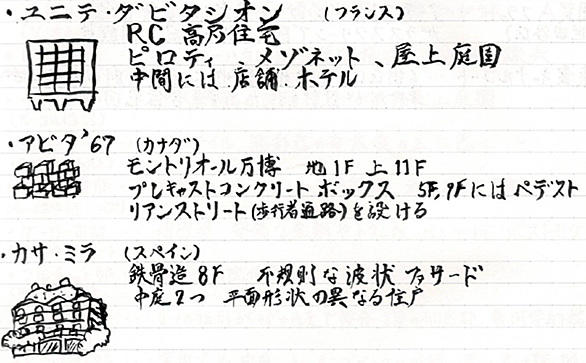 ・ユニテ・ダビタシオン (フランス)
RC 高層住宅
ピロティ、メゾネット、屋上庭園
中間には店舗・ホテル
・アビタ'67 (カナダ)
モントリオール万博 地1F 上11F
プレキャストコンクリートボックス 5F,9Fにはペデスト
リアンストリート(歩行者通路)を設ける
・カサ・ミラ (スペイン)
鉄骨造8F 不規則な波状ファサード
中庭2つ 平面形状の異なる住戸